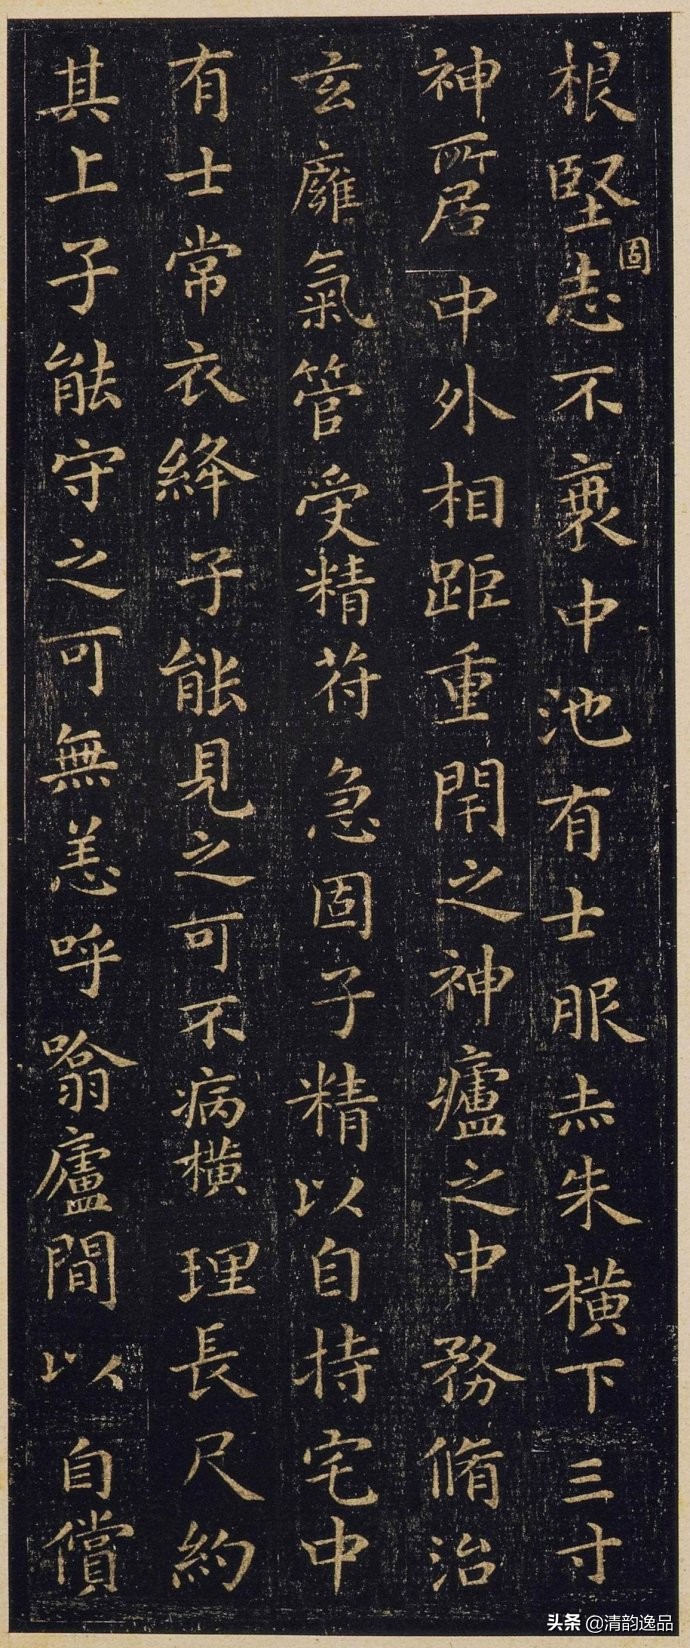 根堅志不衰中池有士服赤朱橫下三寸
固
神所居中外相距重閇之神廬之中務脩治
玄廱氣管受精苻急固子精以自持宅中
有士常衣絳子能見之可不病橫理長尺約
其上子能守之可無恙呼噏廬間以自償
头条 @清韵逸品